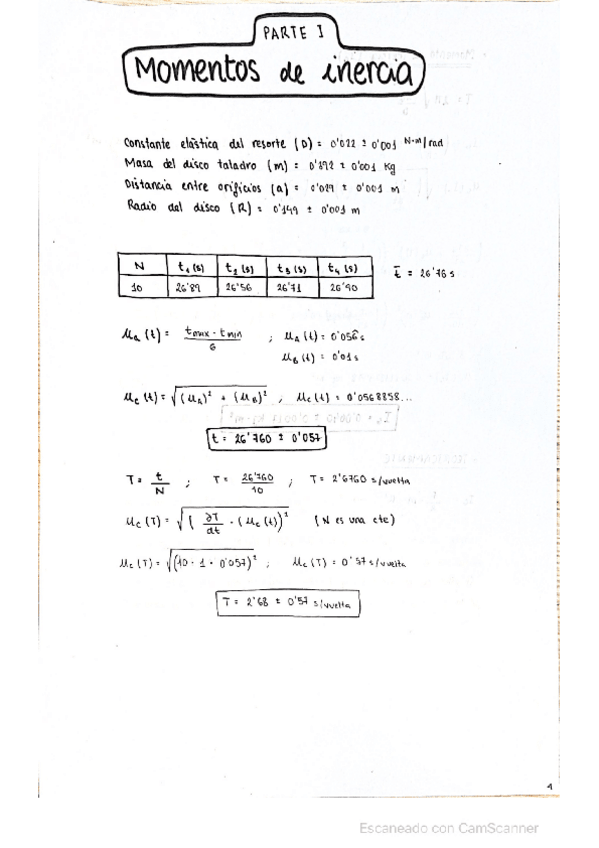 PARTE I
Momentos de inercia
Constante elástica del resorte (D) = 0'022 ± 0'001 N·m/rad
Masa del disco taladro (m) = 0'192 ± 0'001 Kg
Distancia entre orificios (a) = 0'029 ± 0'001 m
Radio del disco (R) = 0'149 ± 0'001 m
N t₁ (s) t₂ (s) t₃ (s) t₄ (s)
10 26'89 26'56 26'71 26'90
t̄ = 26'76 s
μₐ (t) = (tmax - tmin)/6 ; μA (t) = 0'056 s
μB (t) = 0'01 s
μc (t) = √((μA)² + (μB)²) ; μc (t) = 0'0568858...
t = 26'760 ± 0'057
T = t/N ; T = 26'760/10 ; T = 2'6760 s/vuelta
μc (T) = √((∂T/dt · (μc (t))²) (N es una cte)
μc (T) = √((10 · 1 · 0'057)²) ; μc (T) = 0'57 s/vuelta
T = 2'68 ± 0'57 s/vuelta
1
Escaneado con CamScanner